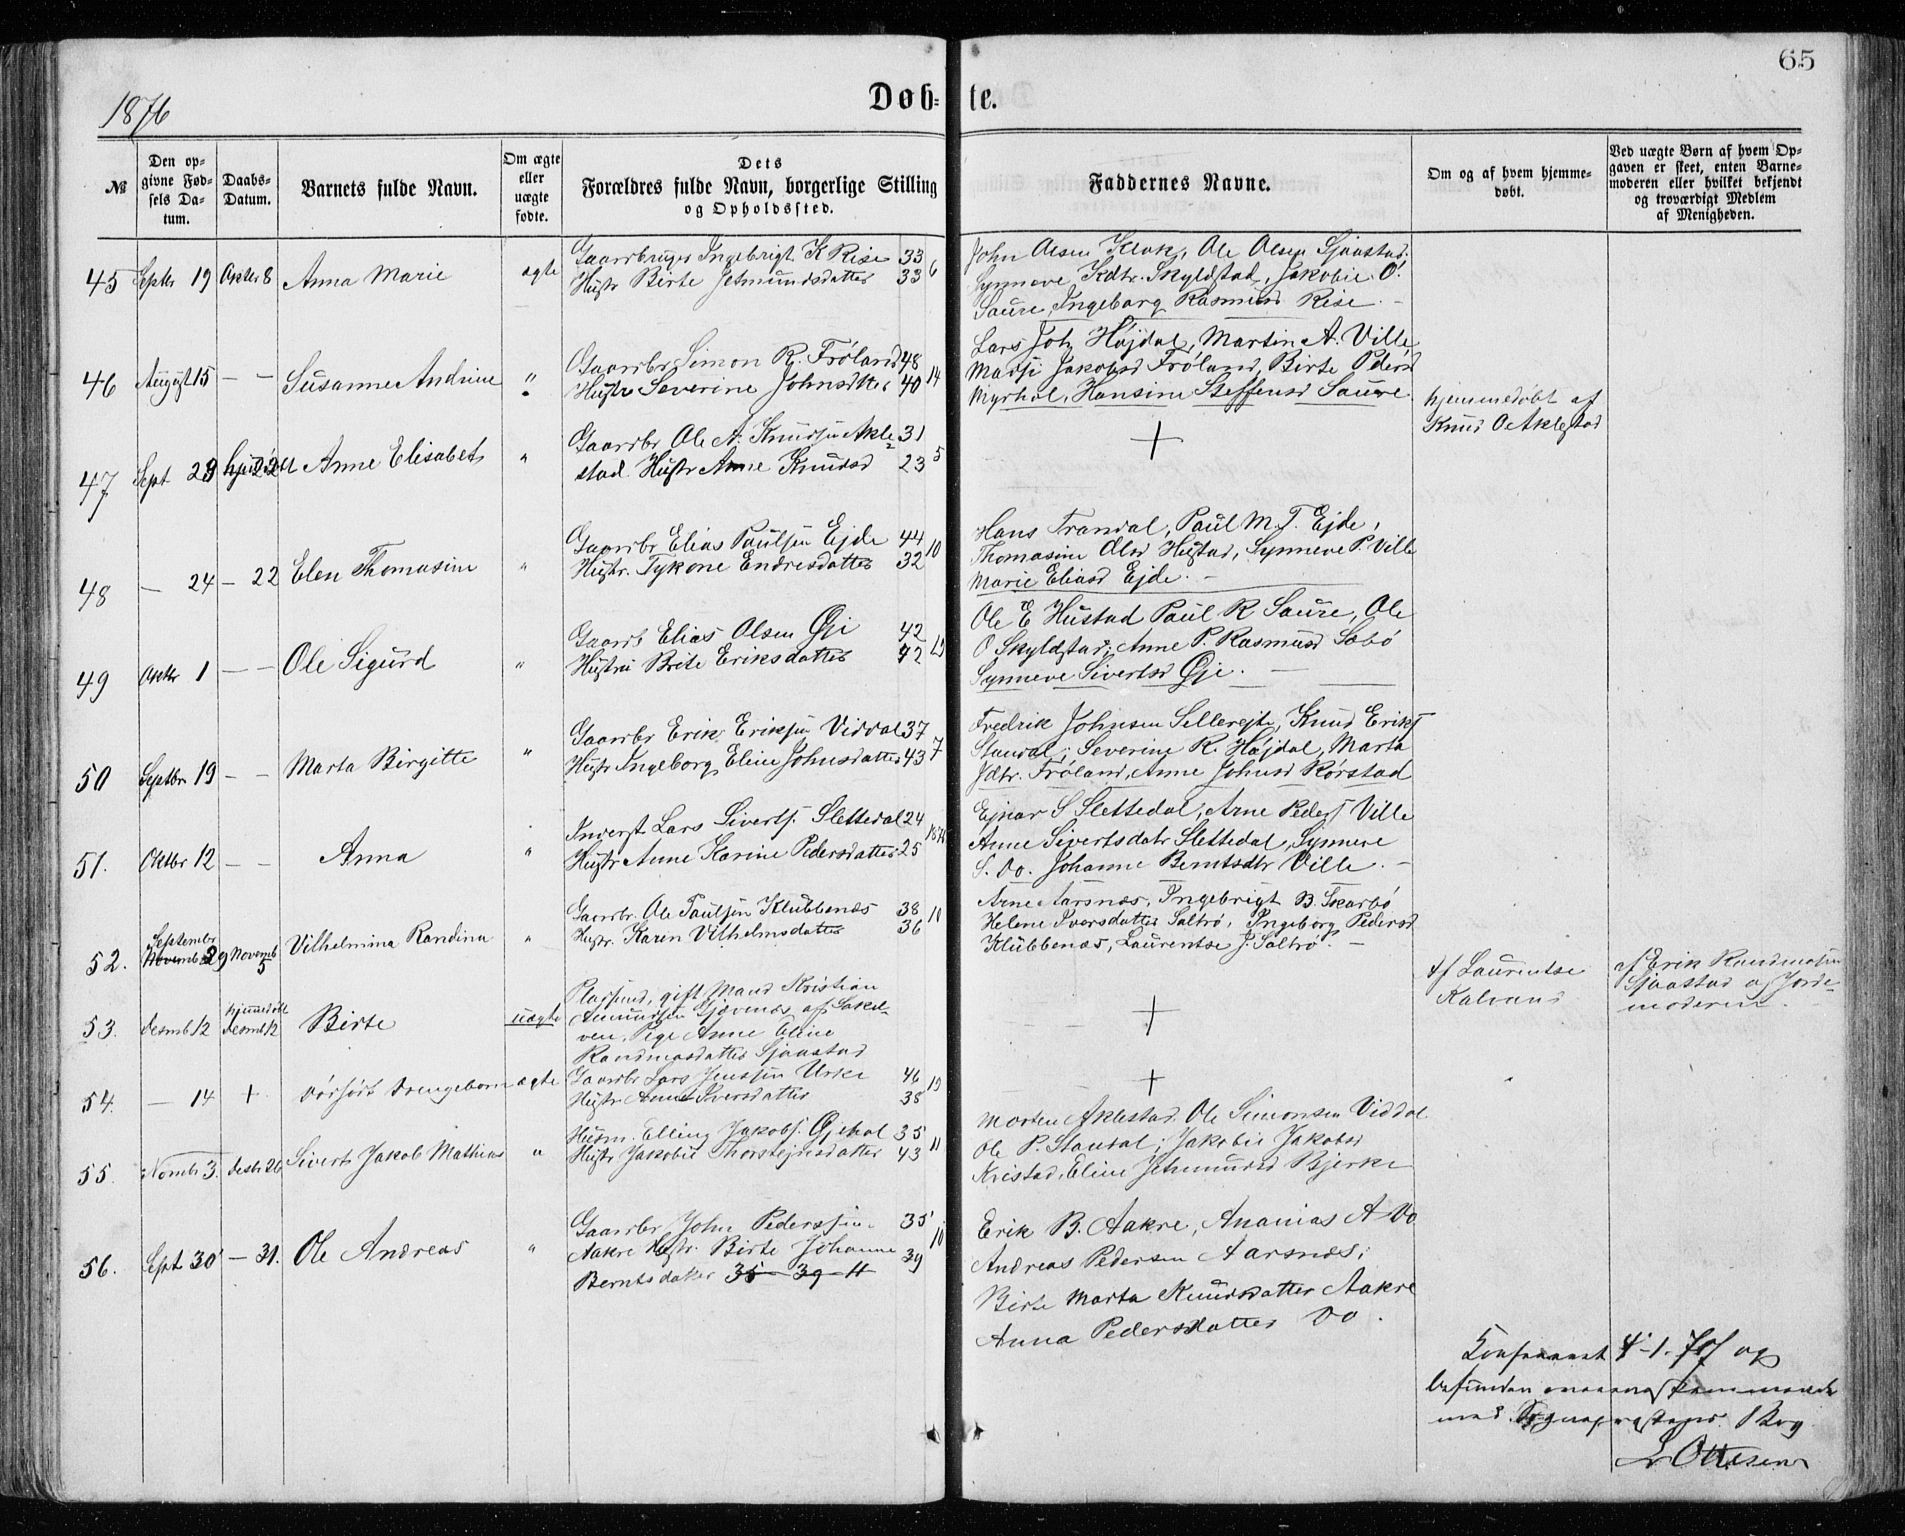 65
1876
Døb-
te.
№
Den op-
givne Fød-
sels Da-
tum.
Daabs-
Datum.
Barnets fulde Navn.
Om ægte
eller
uægte
fødte.
Dets
Forældres fulde Navn, borgerlige Stilling
og Opholdssted.
Faddernes Navne.
Om og af hvem hjemme-
døbt.
Ved uægte Børn af hvem Op-
gaven er skeet, enten Barne-
moderen eller hvilket bekjendt
og troværdigt Medlem
af Menigheden.
45 Septbr 19 Octbr 8 Anna Marie ægte
Gaardbruger Ingebrigt K Rise 33
Hustr Birte Jetmundsdatter 33 6
John Olsen Klok, Ole Olsen Sjaastad
Synneve Kdtr. Skyldstad, Jakobie O.
Saure, Ingeborg Rasmusd Rise. -
46 August 15 — — Susanne Andrine "
Gaardbr Simon R. Frøland 48
Hustr Severine Johnsdtter 40 14
Lars Joh Højdal, Martin A. Ville,
Marji Jakobsd Frøland, Birte Pedersd
Myrhol, Hansine Steffensd Saure
47 Sept 23 22 Anne Elisabet "
Gaardbr Ole A. Knudsen Akle- 31
stad Hustr Anne Knudsd 23 5
+
hjemmedøbt af
Knud O Aklestad
48 — 24 — 22 Elen Thomasine "
Gaardbr Elias Paulsen Ejde 44
Hustr. Tykone Endresdatter 32 10
Hans Trandal, Paul M. T. Ejde,
Thomasine Olsd Hustad, Synneve P. Ville
Marie Eliasd Ejde. -
49 Oktbr 1 — — Ole Sigurd "
Gaardb Elias Olsen Øje 42
Hustru Brite Eriksdatter 42
Ole E Hustad Paul R Saure, Ole
O Skyldstad, Anne P. Rasmusd Sæbø
Synneve Sivertsd Øje. —
50 Septbr 19 — — Marta Birgitte "
Gaardbr Erik Eriksen Viddal 37
Hustr Ingeborg Eline Johnsdatter 43 7
Fredrik Johnsen Sellereite, Knud Eriks
Standal, Severine R. Højdal, Marta
Jdtr. Frøland, Anne Johnsd Rørstad
51. Oktbr 12 — — Anna "
Inderst Lars Sivertsj. Slettedal 24
Hustr Anne Karine Pedersdatter 25
Ejnar S Slettedal, Arne Peders Ville
Anne Sivertsdatr Slettedal, Synneve
S. Do. Johanne Berntsdtr Ville. -
52. September 29 Novemb 5 Vilhelmina Randina "
Gaardbr. Ole Paulsen Klubbenæs 38
Hustr. Karen Vilhelmsdatter 36 10
Arne Aarsnæs, Ingebrigt B. Skarbø
Helene Iversdatter Saltrø, Ingeborg Pedersd
Klubbenæs, Laurentse J. Saltrø. -
53. Desmb 12 hjemmedøbt Desmb 12 Birte uægte
gift Mand Kristian
Amundsen af Søkel-
ven, Pige Anne Eline
Randmodsdatter Sjaastad
+
af Laurentse
Kalvand
af Erik Randmodsen
Sjaastad og Jorde-
moderen.
54. — 14 + dødfødt Drengebarn ægte
Gaardbr Lars Jensen Urke 46
Hustr Anne Iversdatter 38 19
+
55. Nombr 3. Desbr 26 Sivert Jakob Mathias "
Husm. Elling Jakobs. Øjehol 35
Hustr Jakobie Thorstejnsdatter 43 11
Morten Aklestad, Ole Simonsen Viddal
Ole P. Standal, Jakobie Jakobsd
Kvistad, Eline Jetmundsd Bjerke
56. Sept 30 — 31. Ole Andreas "
Gaardbr John Pedersen 35
Aakre Hustr. Birte Johanne 39 10
Berntsdatter 35 39 11
Erik B. Aakre, Ananias A Do
Andreas Pedersen Aarsnæs,
Birte Marta Knudsdatter Aakre
Anna Pedersdatter Do.
Konfereret 4-1-77 og
befunden overensstemmende
med Sognepræstens Bog
Ottesen